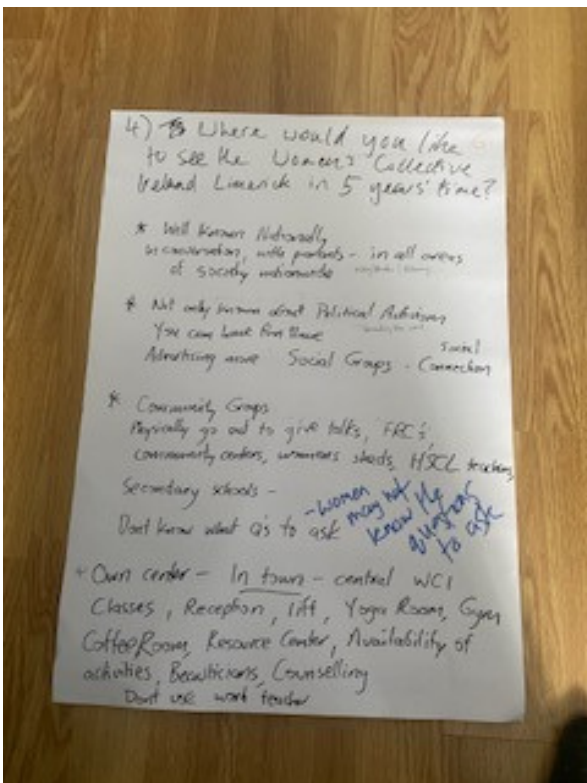 4) Where would you like
to see the Women's Collective
Ireland Limerick in 5 years' time?
* Well known Nationally
in conversation, with parents - in all areas
of society nationwide
* Not only known about Political Activism
You can have fun there
Social
Advertising more Social Groups - Connection
* Community Groups
Physically go out to give talks, FRC's,
community centers, womens sheds, HSCL teachers,
Secondary schools -
Dont know what Q's to ask
- women
may not
know the
questions
to ask
* Own center - In town - central WCI
Classes, Reception, lift, Yoga Room, Gym
Coffee Room, Resource Center, Availability of
activities, Beauticians, Counselling
Dont use word teacher